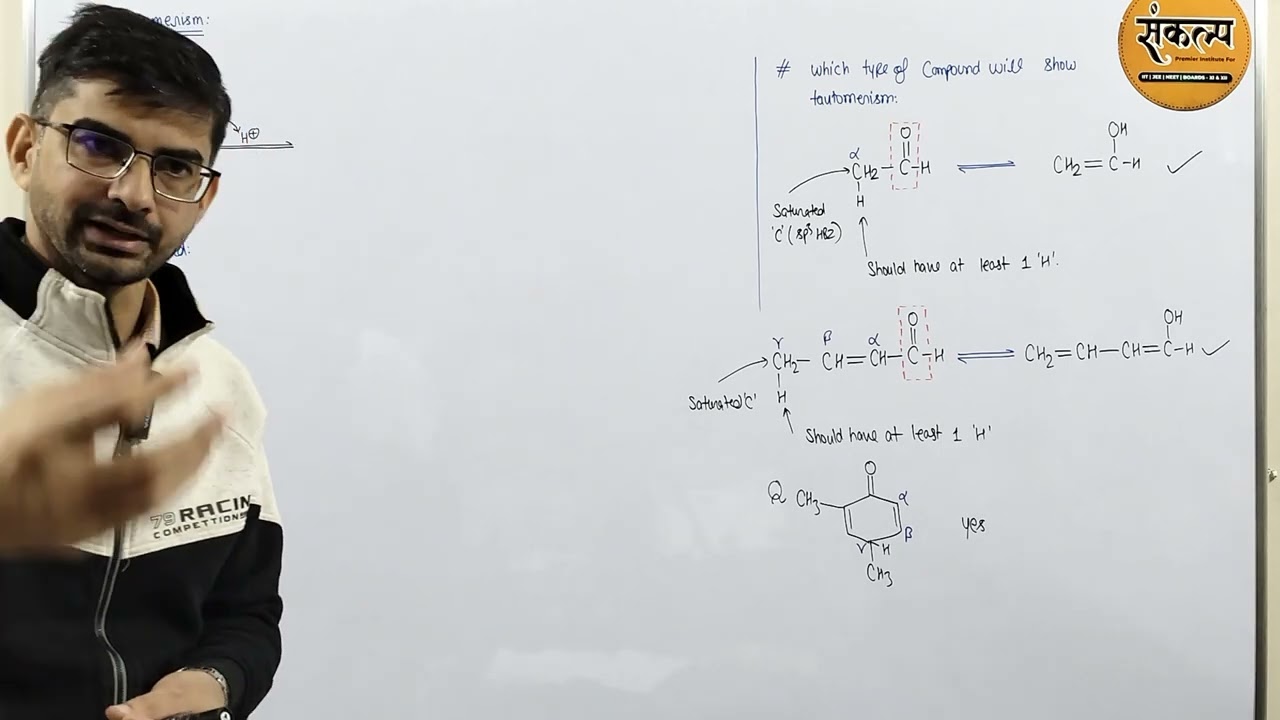 संकल्प
Premier Institute For
IIT | JEE | NEET | BOARDS - XI & XII
# which type of Compound will show
tautomerism:
OH
O
α
CH2 — C — H ⇌ CH2 = C — H ✓
H
H⊕
Saturated
'C' (sp3 HBZ)
Should have at least 1 'H'.
OH
O
γ β α
CH2 — CH = CH — C — H ⇌ CH2 = CH — CH = C — H ✓
H
Saturated 'C'
Should have at least 1 'H'
O
Q CH3 α
β yes
γ H
CH3
79 RACIN
COMPETTIONS